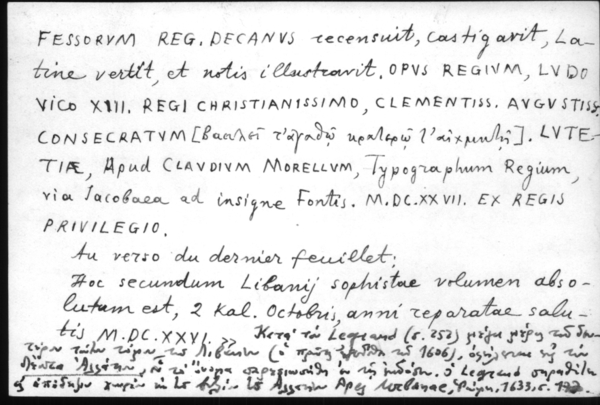 FESSORVM REG. DECANVS recensuit, castigavit, La-
tine vertit, et notis illustravit. OPVS REGIVM, LVDO
VICO XIII. REGI CHRISTIANISSIMO, CLEMENTISS. AVGVSTISS.
CONSECRATVM [βασιλεῖ τ'ἀγαθῷ κρατερῷ τ'αἰχμητῇ]. LVTE-
TIÆ, Apud CLAVDIVM MORELLVM, Typographum Regium,
via Iacobaea ad insigne Fontis. M.DC.XXVII. EX REGIS
PRIVILEGIO.
Au verso du dernier feuillet:
Hoc secundum Libanij sophistae volumen abso-
lutum est, 2 Kal. Octobris, anni reparatae salu-
tis M.DC.XXVI. Κατὰ τὸν Legrand (σ. 252)
τόμου τοῦ Λιβανίου (ὁ πρῶτος 1606),
Λέοντα Ἀλλάτιον, ὁ Legrand
Ἀλλατίου Apes Urbanae, Ρώμη, 1633, σ.